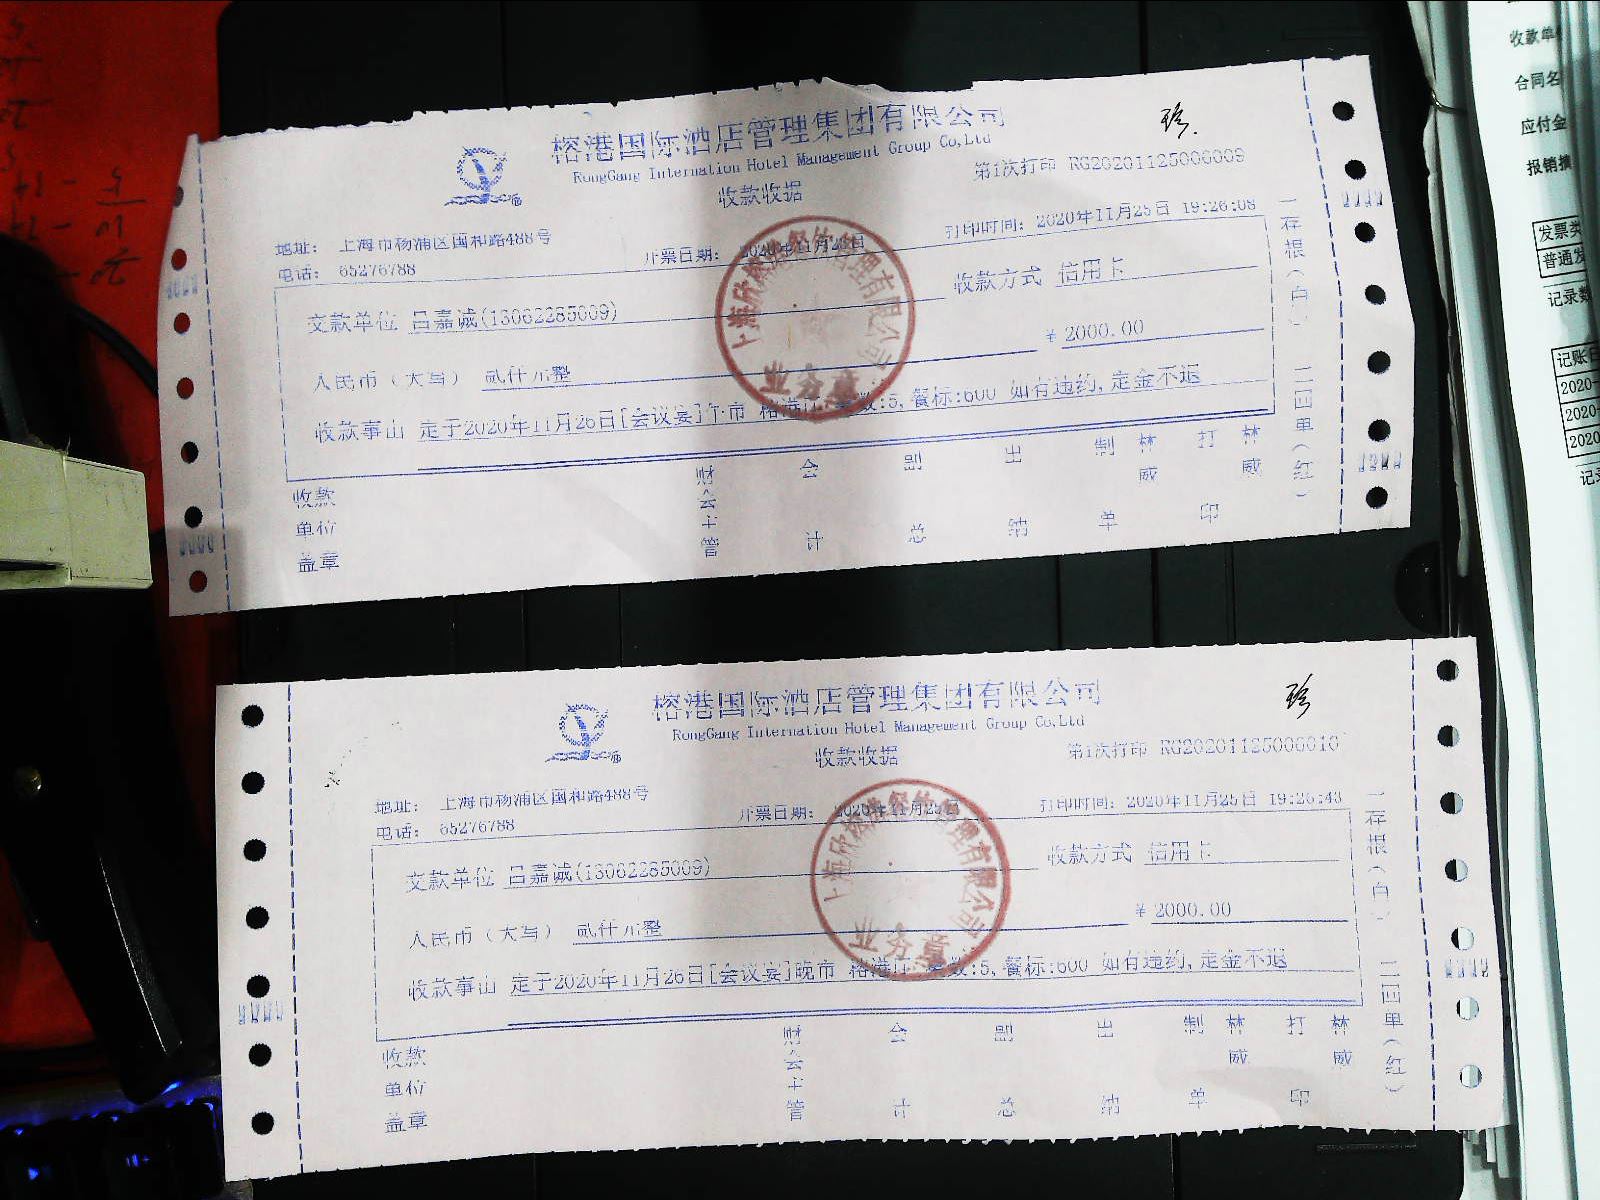 榕港国际酒店管理集团有限公司
RongGang Internation Hotel Management Group Co,Ltd
收款收据
珍
第1次打印 RG20201125000009
地址： 上海市杨浦区国和路488号
电话： 65276788
开票日期： 2020年11月25日
打印时间： 2020年11月25日 19:26:08
交款单位 吕嘉诚(13062285009)
收款方式 信用卡
人民币（大写） 贰仟元整
¥ 2000.00
收款事由 定于2020年11月26日[会议宴]午市 榕港厅 桌数:5,餐标:600 如有违约,定金不退
收款单位盖章
财会主管
会计
副总
出纳
制单 林威
打印 林威
一存根（白） 二回单（红）
业务章
榕港国际酒店管理集团有限公司
RongGang Internation Hotel Management Group Co,Ltd
收款收据
珍
第1次打印 RG20201125000010
地址： 上海市杨浦区国和路488号
电话： 65276788
开票日期： 2020年11月25日
打印时间： 2020年11月25日 19:26:43
交款单位 吕嘉诚(13062285009)
收款方式 信用卡
人民币（大写） 贰仟元整
¥ 2000.00
收款事由 定于2020年11月26日[会议宴]晚市 榕港厅 桌数:5,餐标:600 如有违约,定金不退
收款单位盖章
财会主管
会计
副总
出纳
制单 林威
打印 林威
一存根（白） 二回单（红）
业务章
收款单
合同名
应付金
报销摘
发票类
普通发
记录数
记账日
2020-
2020-
2020